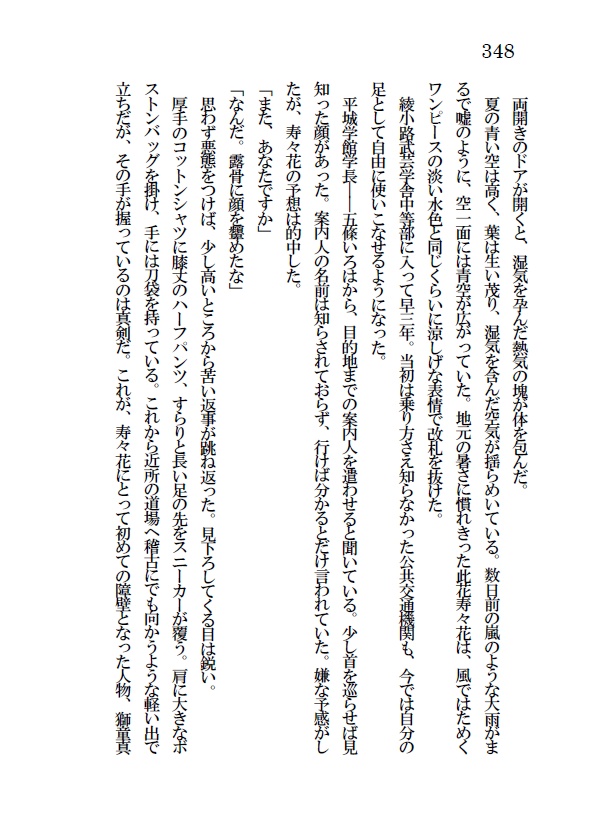 348
両開きのドアが開くと、湿気を孕んだ熱気の塊が体を包んだ。
夏の青い空は高く、葉は生い茂り、湿気を含んだ空気が揺らめいている。数日前の嵐のような大雨がま
るで嘘のように、空一面には青空が広がっていた。地元の暑さに慣れきった此花寿々花は、風ではためく
ワンピースの淡い水色と同じくらいに涼しげな表情で改札を抜けた。
綾小路武芸学舎中等部に入って早三年。当初は乗り方さえ知らなかった公共交通機関も、今では自分の
足として自由に使いこなせるようになった。
平城学館学長――五條いろはから、目的地までの案内人を遣わせると聞いている。少し首を巡らせば見
知った顔があった。案内人の名前は知らされておらず、行けば分かるとだけ言われていた。嫌な予感がし
たが、寿々花の予想は的中した。
「また、あなたですか」
「なんだ。露骨に顔を顰めたな」
思わず悪態をつけば、少し高いところから苦い返事が跳ね返った。見下ろしてくる目は鋭い。
厚手のコットンシャツに膝丈のハーフパンツ、すらりと長い足の先をスニーカーが覆う。肩に大きなボ
ストンバッグを掛け、手には刀袋を持っている。これから近所の道場へ稽古にでも向かうような軽い出で
立ちだが、その手が握っているのは真剣だ。これが、寿々花にとって初めての障壁となった人物、獅童真